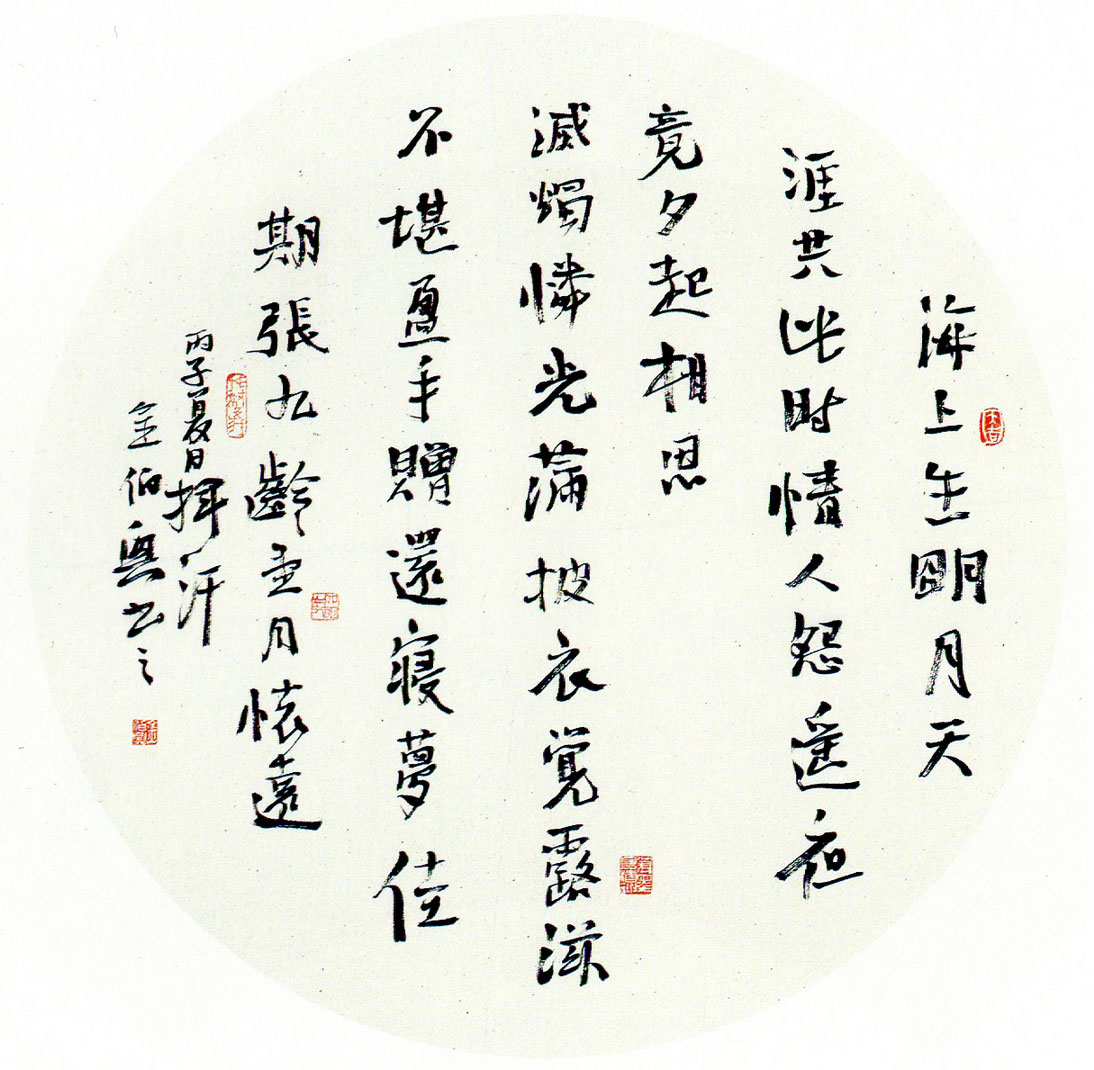 海上生明月天
涯共此时情人怨遥夜
竟夕起相思
滅燭憐光滿披衣覺露滋
不堪盈手贈還寢夢佳
期張九齡望月懷遠
丙子夏日揮汗
金伯興书之